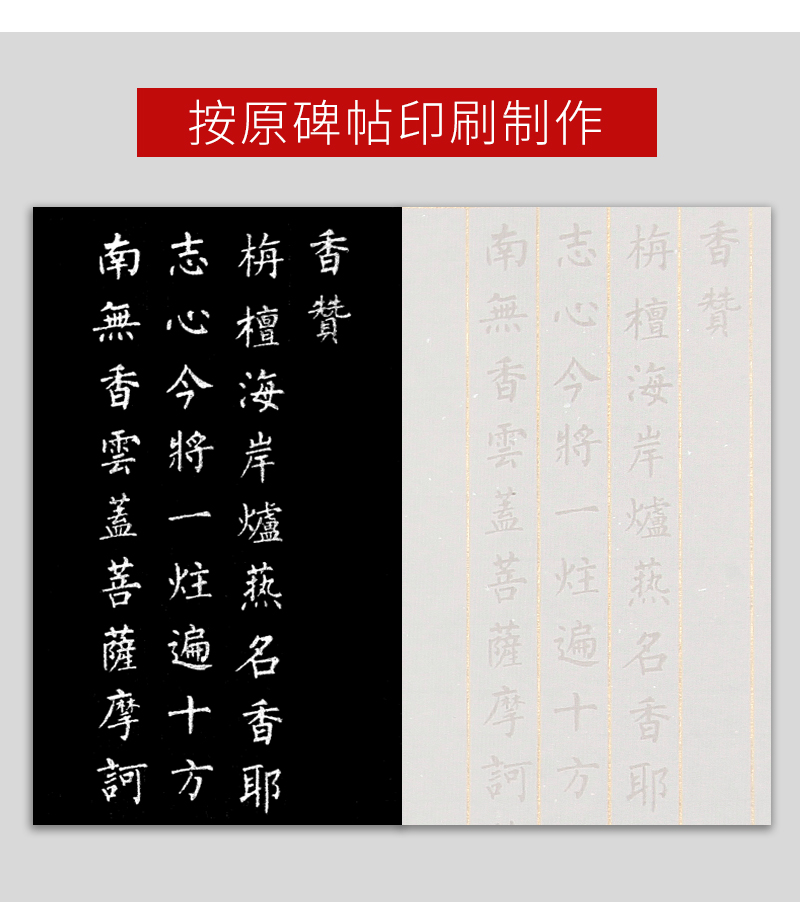 按原碑帖印刷制作
香贊
栴檀海岸爐爇名香耶
志心今將一炷遍十方
南無香雲蓋菩薩摩訶
香贊
栴檀海岸爐爇名香耶
志心今將一炷遍十方
南無香雲蓋菩薩摩訶